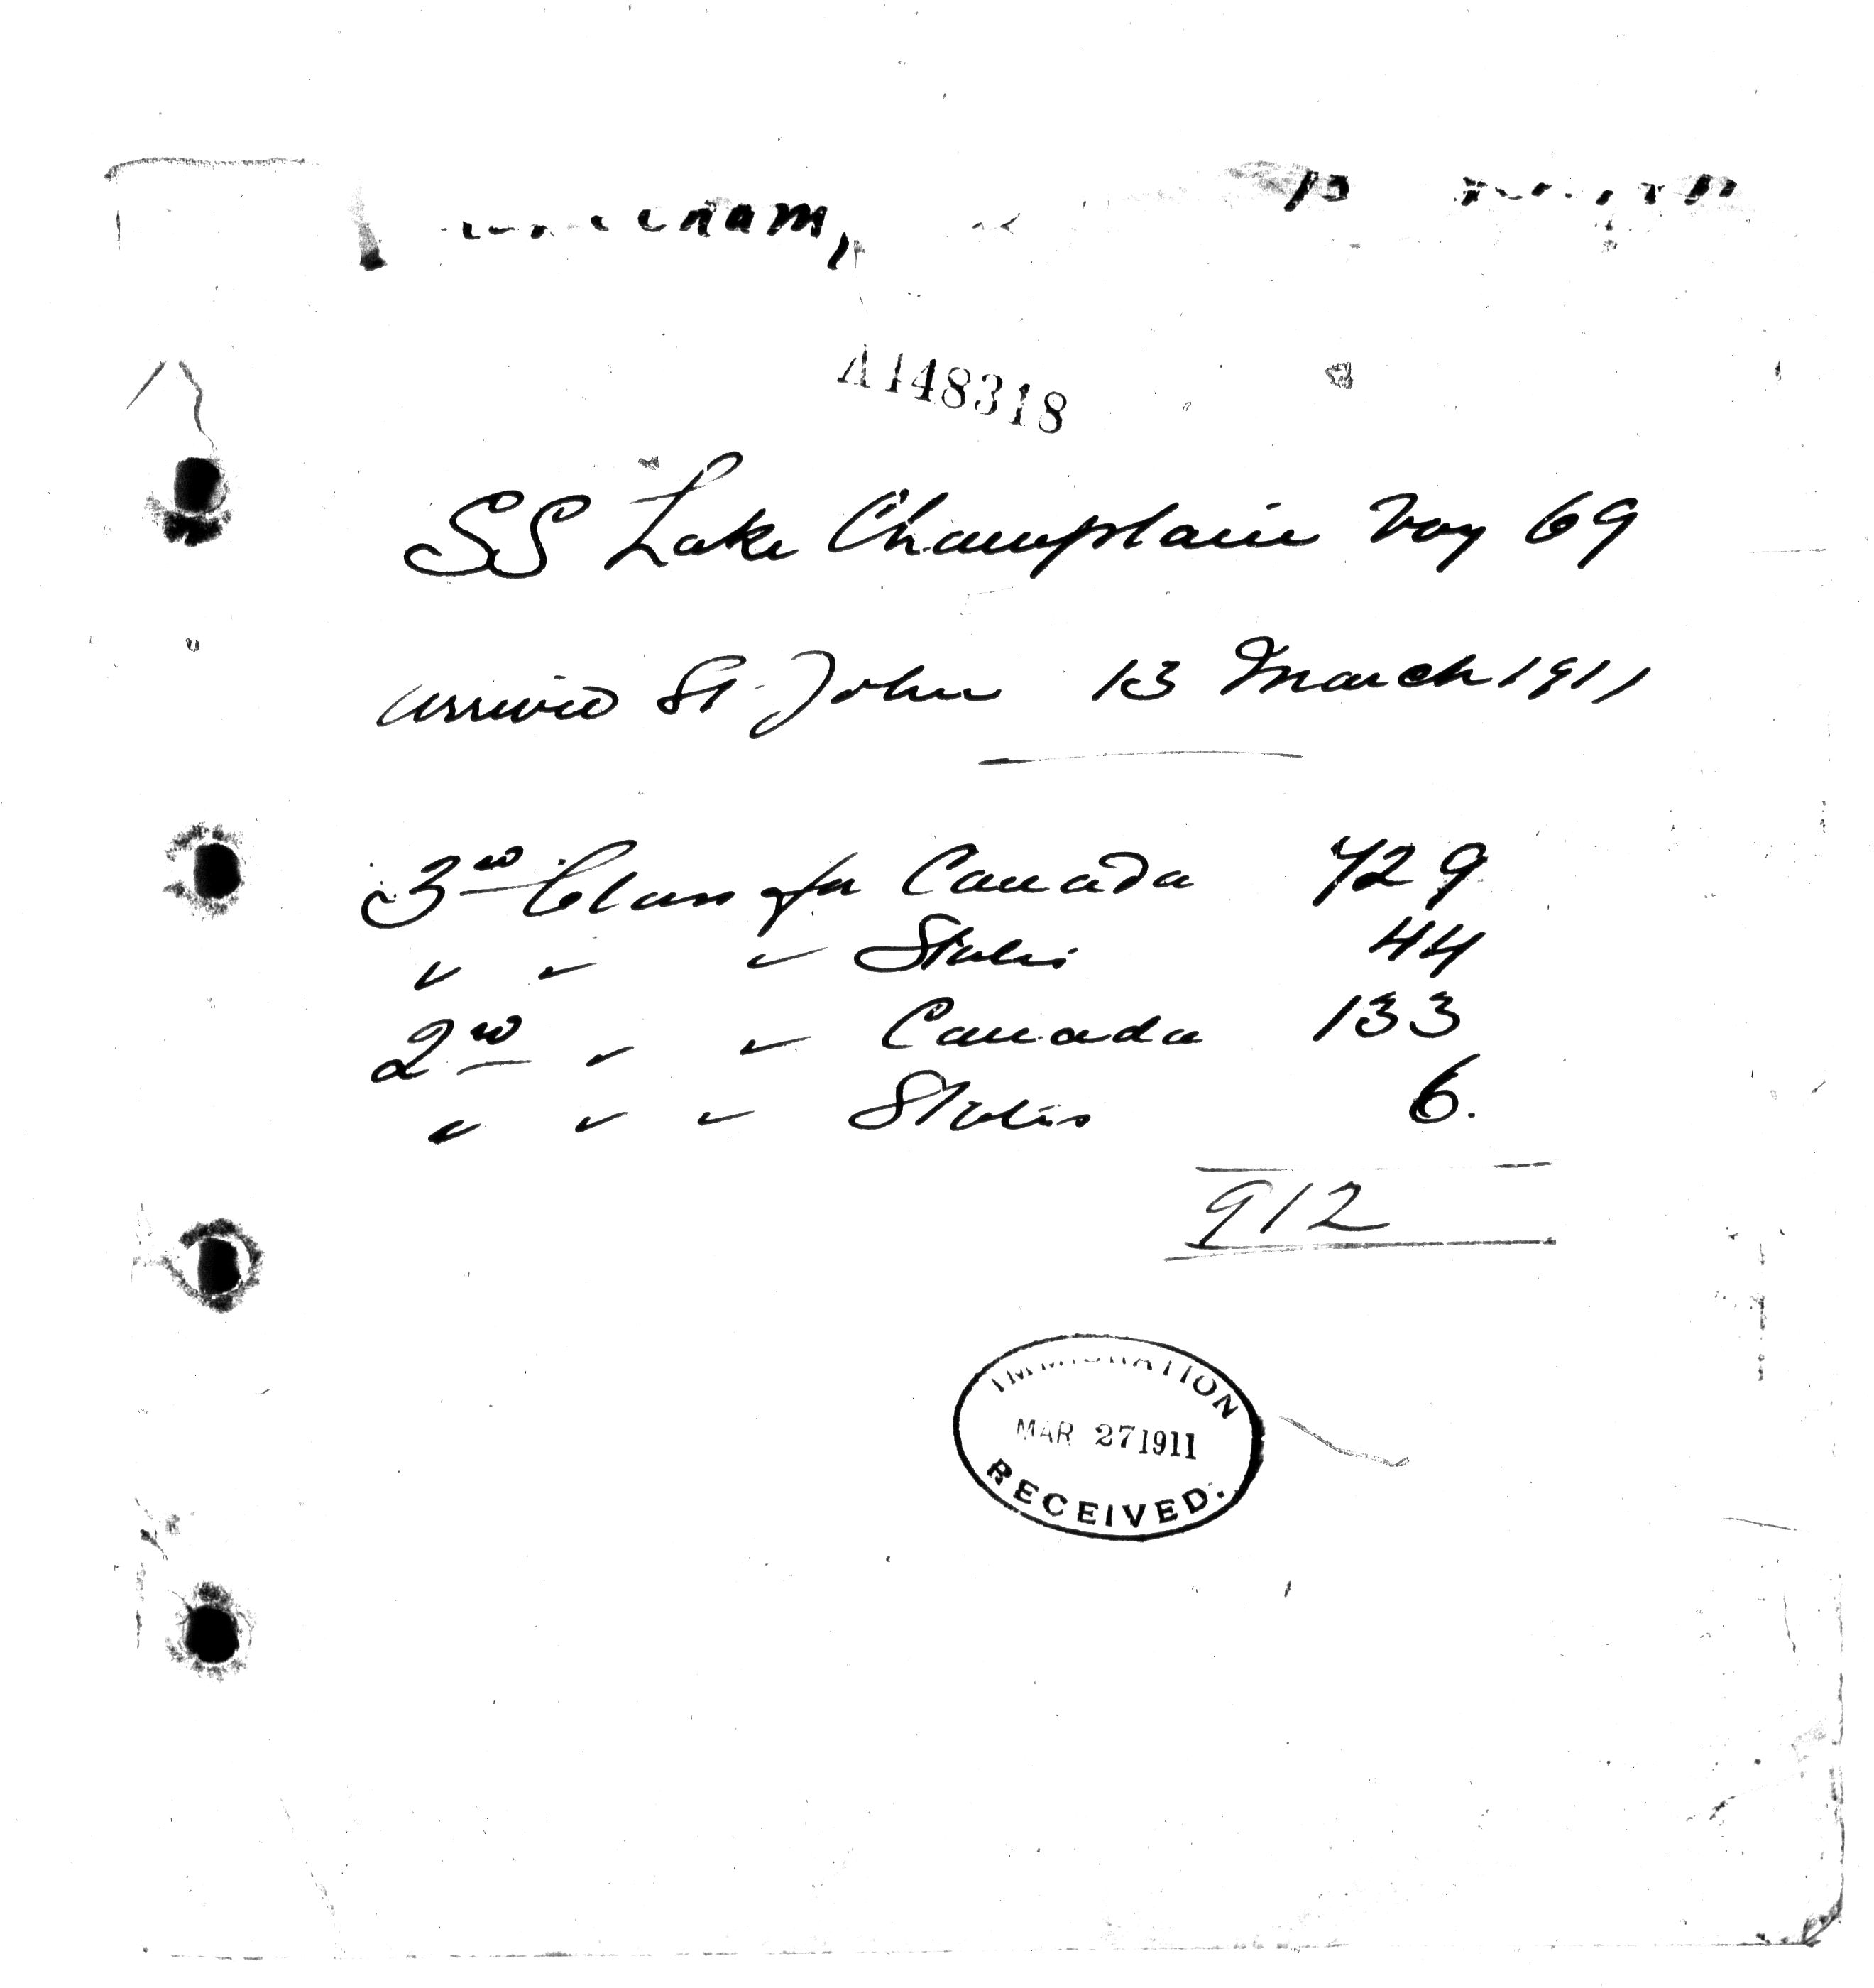 A148318
SS Lake Champlain Voy 69
arrived St. John 13 March 1911
3rd Class for Canada 729
" " " States 44
2nd " " Canada 133
" " " States 6.
912
IMMIGRATION
MAR 27 1911
RECEIVED.